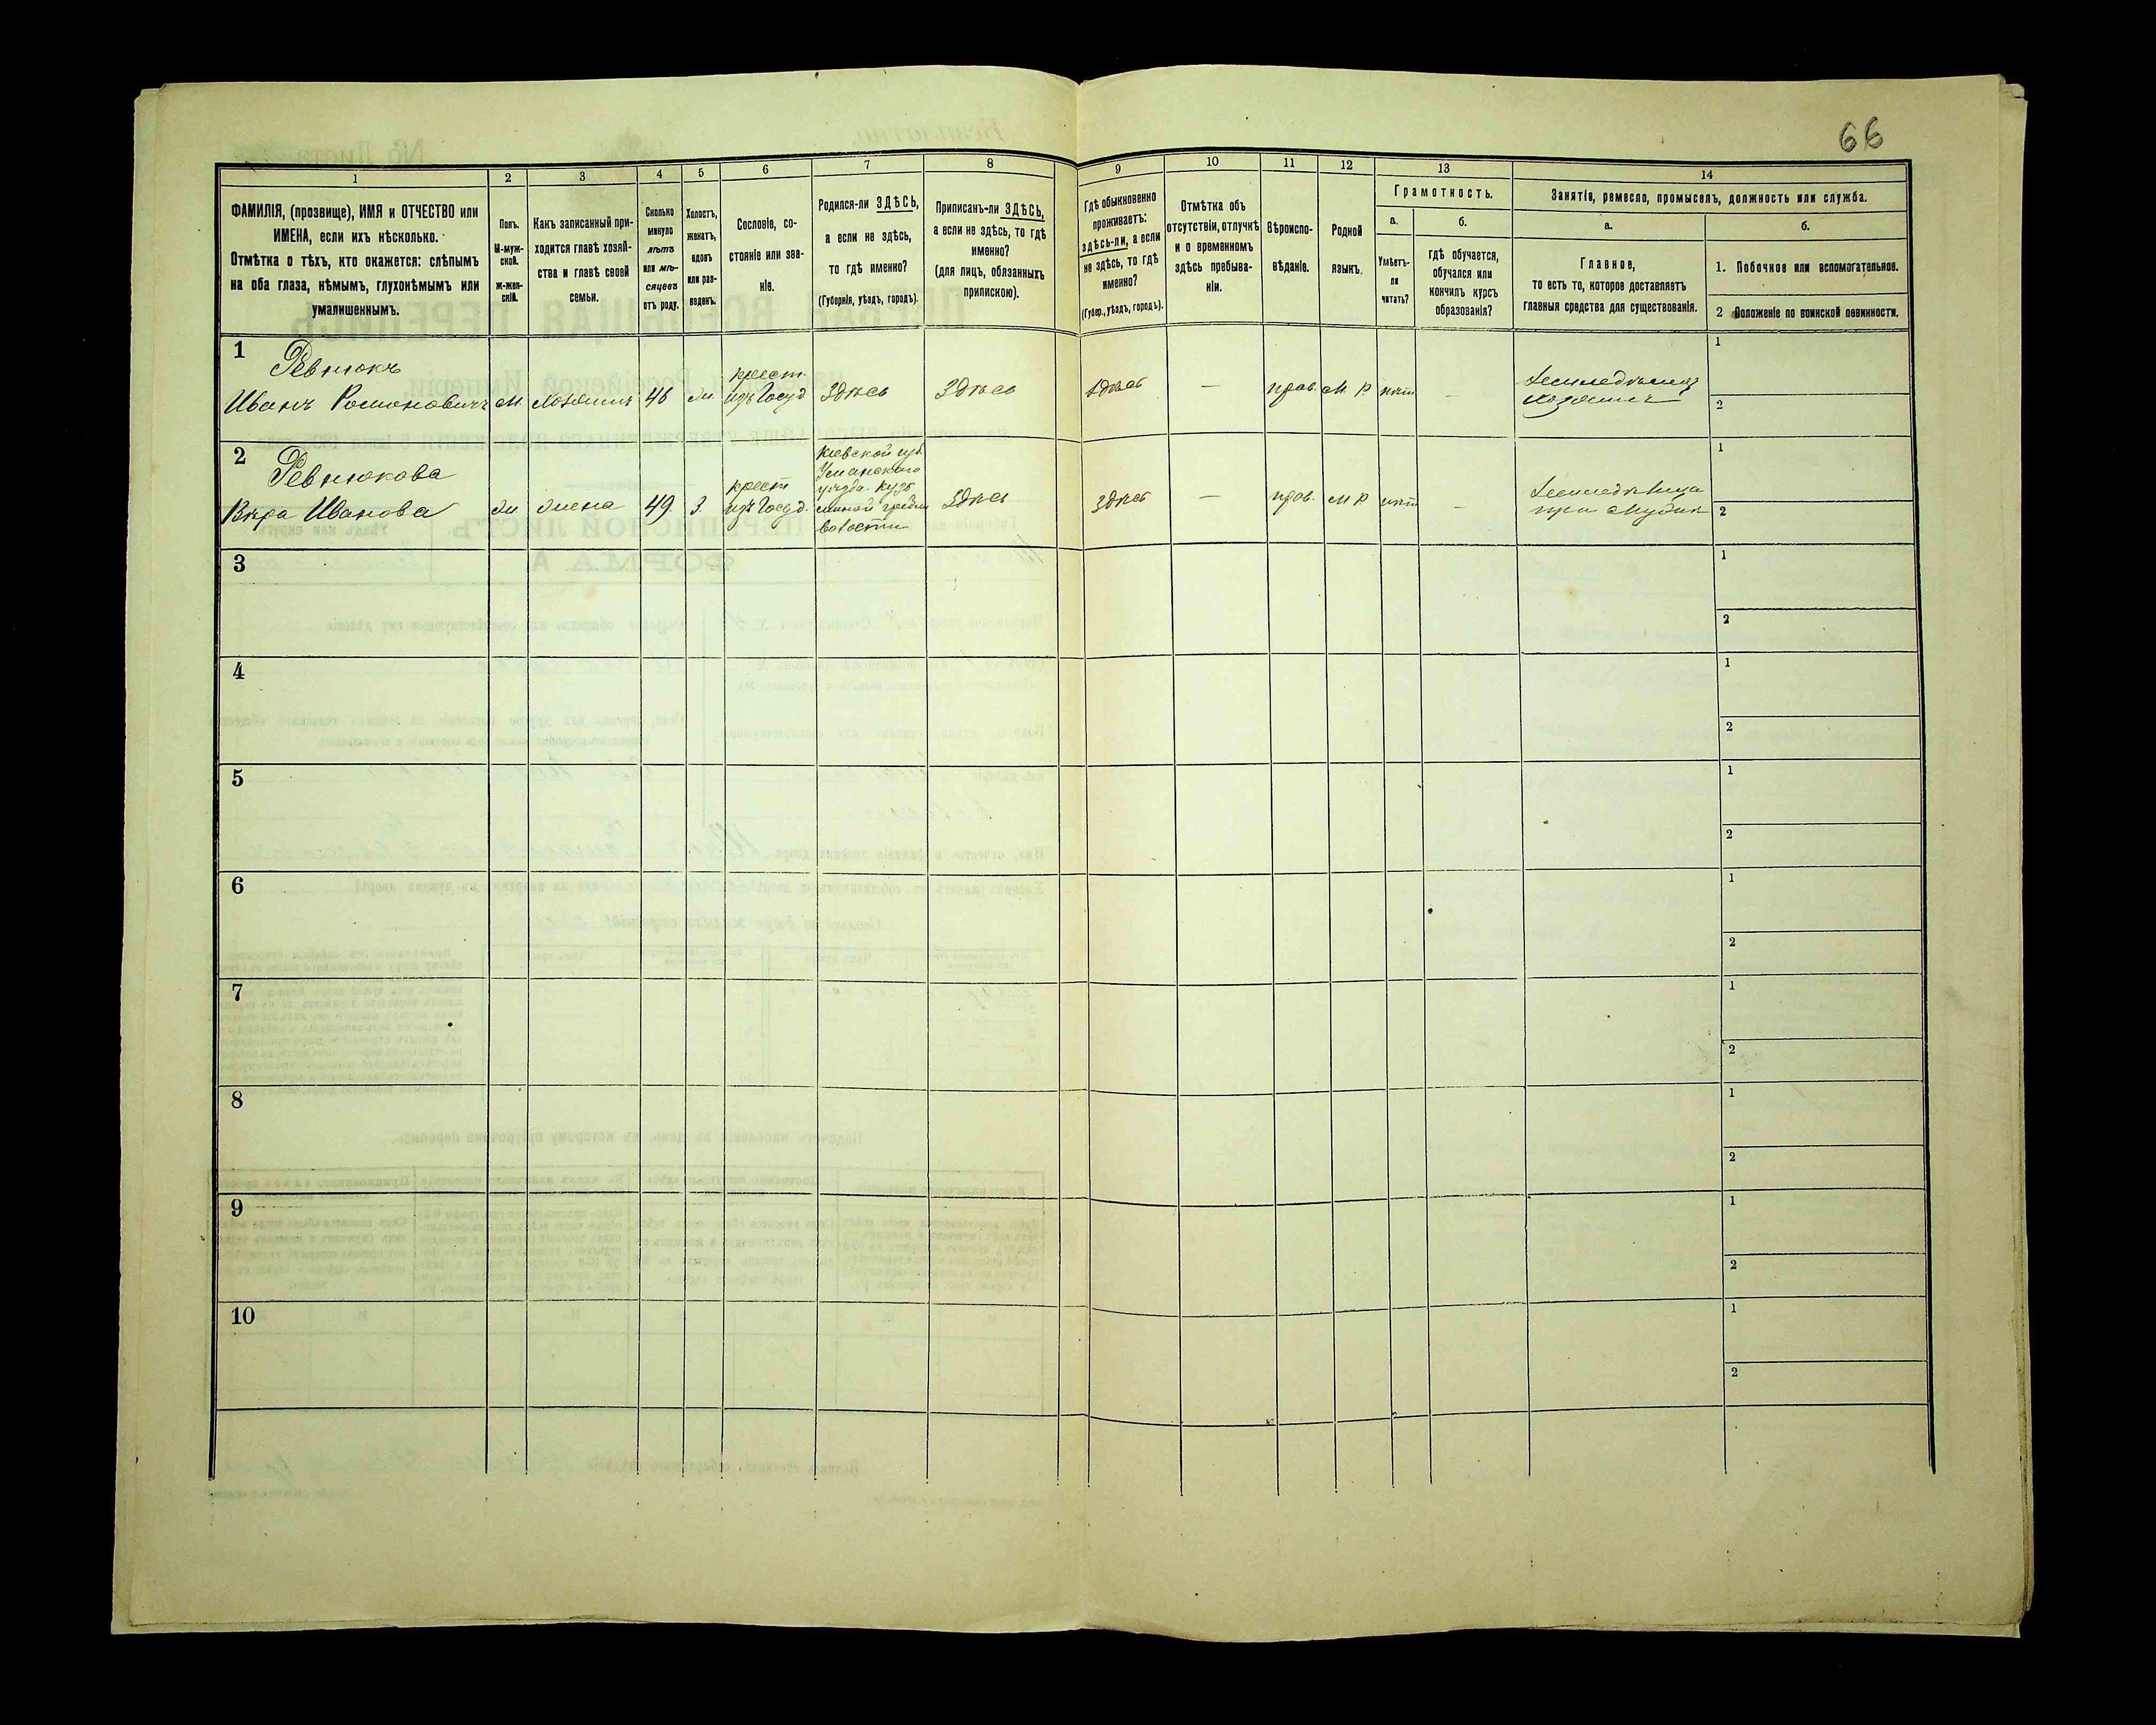 66
1
2
3
4
5
6
7
8
9
10
11
12
13
14
ФАМИЛІЯ, (прозвище), ИМЯ и ОТЧЕСТВО или
ИМЕНА, если ихъ нѣсколько.
Отмѣтка о тѣхъ, кто окажется: слѣпымъ
на оба глаза, нѣмымъ, глухонѣмымъ или
умалишеннымъ.
Полъ.
М-муж-
ской.
ж-жен-
скій.
Какъ записанный при-
ходится главѣ хозяй-
ства и главѣ своей
семьи.
Сколько
минуло
лѣтъ
или мѣ-
сяцевъ
отъ роду.
Холостъ,
женатъ,
вдовъ
или раз-
веденъ.
Сословіе, со-
стояніе или зва-
ніе.
Родился-ли ЗДѢСЬ,
а если не здѣсь,
то гдѣ именно?
(Губернія, уѣздъ, городъ).
Приписанъ-ли ЗДѢСЬ,
а если не здѣсь, то гдѣ
именно?
(для лицъ, обязанныхъ
припискою).
Гдѣ обыкновенно
проживаетъ:
здѣсь-ли, а если
не здѣсь, то гдѣ
именно?
(Губер., уѣздъ, городъ).
Отмѣтка объ
отсутствіи, отлучкѣ
и о временномъ
здѣсь пребыва-
ніи.
Вѣроиспо-
вѣданіе.
Родной
языкъ.
Грамотность.
а.
б.
Умѣетъ-
ли
читать?
гдѣ обучается,
обучался или
кончилъ курсъ
образованія?
Занятіе, ремесло, промыселъ, должность или служба.
а.
б.
Главное,
то есть то, которое доставляетъ
главныя средства для существованія.
1. Побочное или вспомогательное.
2 Положеніе по воинской повинности.
1
Ревнюкъ
Иванъ Романовичъ
М.
хозяинъ
46
ж.
крест.
изъ Госуд
Здѣсь
Здѣсь
здѣсь
—
прав.
М. Р.
нѣтъ
—
Земледѣлецъ
хозяинъ
1
2
2
Ревнюкова
Вѣра Иванова
ж
жена
49.
З.
крест
изъ Госуд.
Кіевской губ.
Уманскаго
уѣзда
волости
Здѣсь
здѣсь
—
прав.
М. Р.
нѣтъ
—
при мужѣ
1
2
3
1
2
4
1
2
5
1
2
6
1
2
7
1
2
8
1
2
9
1
2
10
1
2